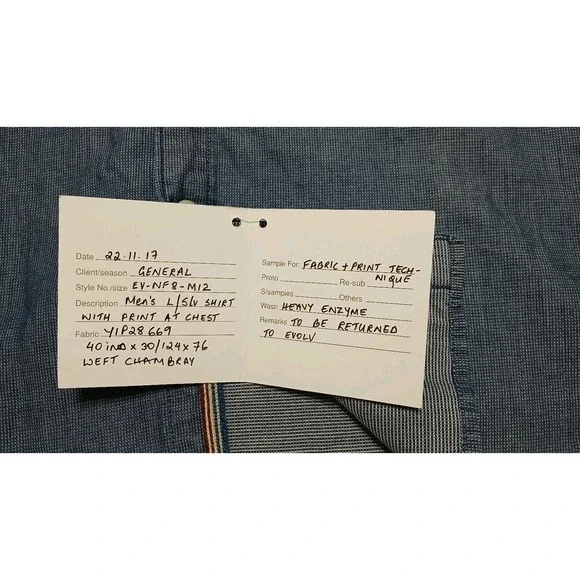 Date 22.11.17
Client/season GENERAL
Style No./size EV-NF8-M12
Description Men's L/SLV SHIRT
WITH PRINT AT CHEST
Fabric YIP28669
40 IND x 30/124 x 76
WEFT CHAMBRAY
Sample For: FABRIC + PRINT TECH-
Proto Re-sub NIQUE
S/samples Others
Wash HEAVY ENZYME
Remarks TO BE RETURNED
TO EVOLV